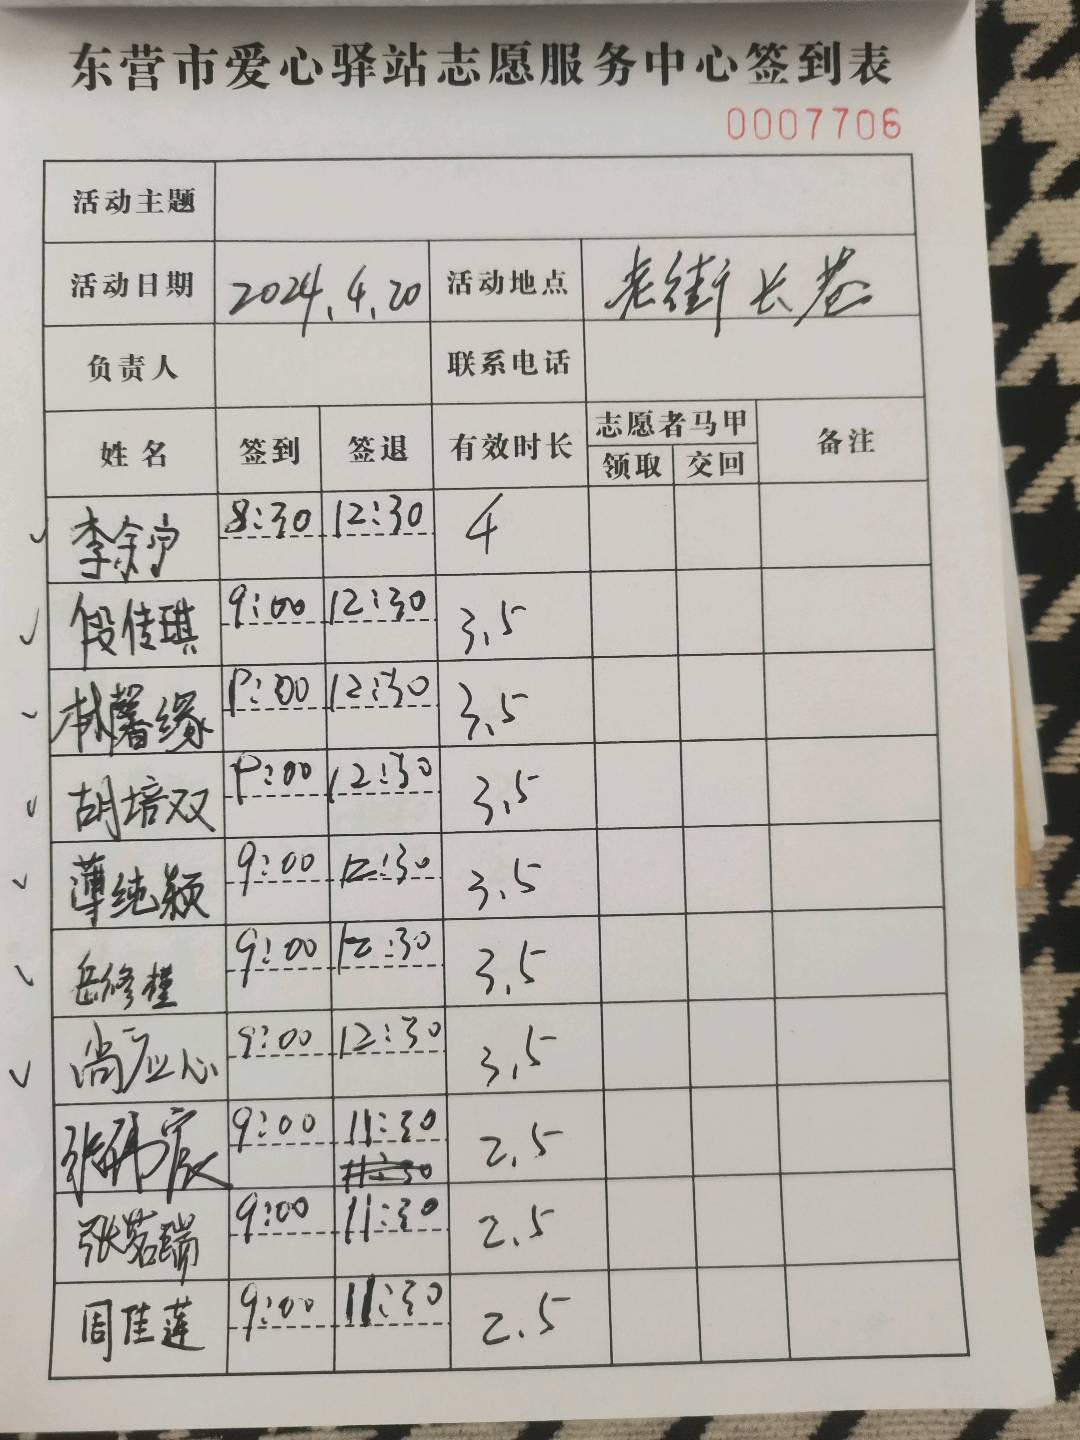 东营市爱心驿站志愿服务中心签到表
0007706
活动主题
活动日期 2024.4.20 活动地点 老街长巷
负责人 联系电话
姓名 签到 签退 有效时长 志愿者马甲 备注
领取 交回
李余宁 8:30 12:30 4
段佳琪 9:00 12:30 3.5
林馨缘 9:00 12:30 3.5
胡培双 9:00 12:30 3.5
薄纯颖 9:00 12:30 3.5
岳修槿 9:00 12:30 3.5
尚应心 9:00 12:30 3.5
张 宸 9:00 11:30 2.5
张茗瑞 9:00 11:30 2.5
周佳莲 9:00 11:30 2.5